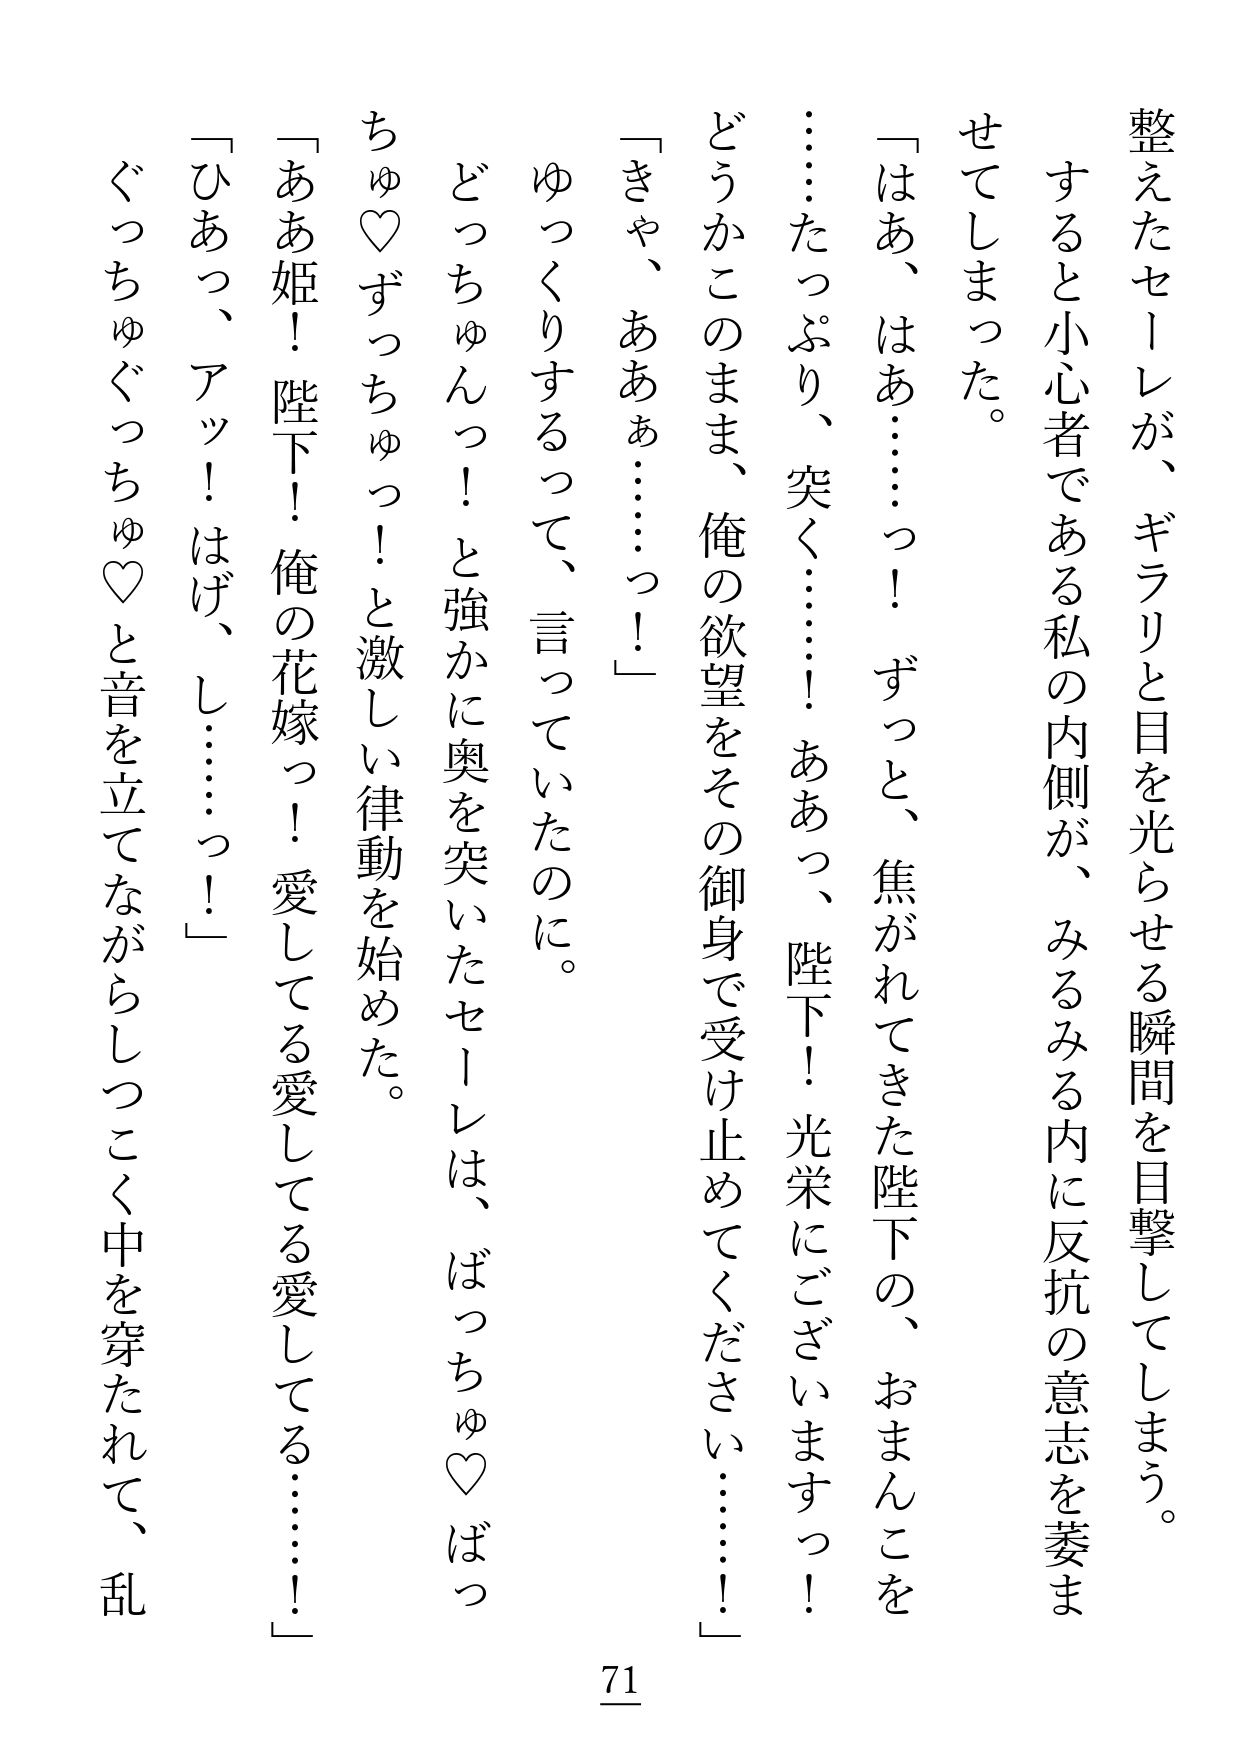 整えたセーレが、ギラリと目を光らせる瞬間を目撃してしまう。
　すると小心者である私の内側が、みるみる内に反抗の意志を萎ま
せてしまった。
「はあ、はあ……っ！　ずっと、焦がれてきた陛下の、おまんこを
……たっぷり、突く……！　ああっ、陛下！　光栄にございますっ！
どうかこのまま、俺の欲望をその御身で受け止めてください……！」
「きゃ、ああぁ……っ！」
　ゆっくりするって、言っていたのに。
　どっちゅんっ！　と強かに奥を突いたセーレは、ばっちゅ♡ ばっ
ちゅ♡ずっちゅっ！と激しい律動を始めた。
「ああ姫！　陛下！　俺の花嫁っ！ 愛してる愛してる愛してる……！」
「ひあっ、アッ！ はげ、し……っ！」
　ぐっちゅぐっちゅ♡ と音を立てながらしつこく中を穿たれて、乱
71